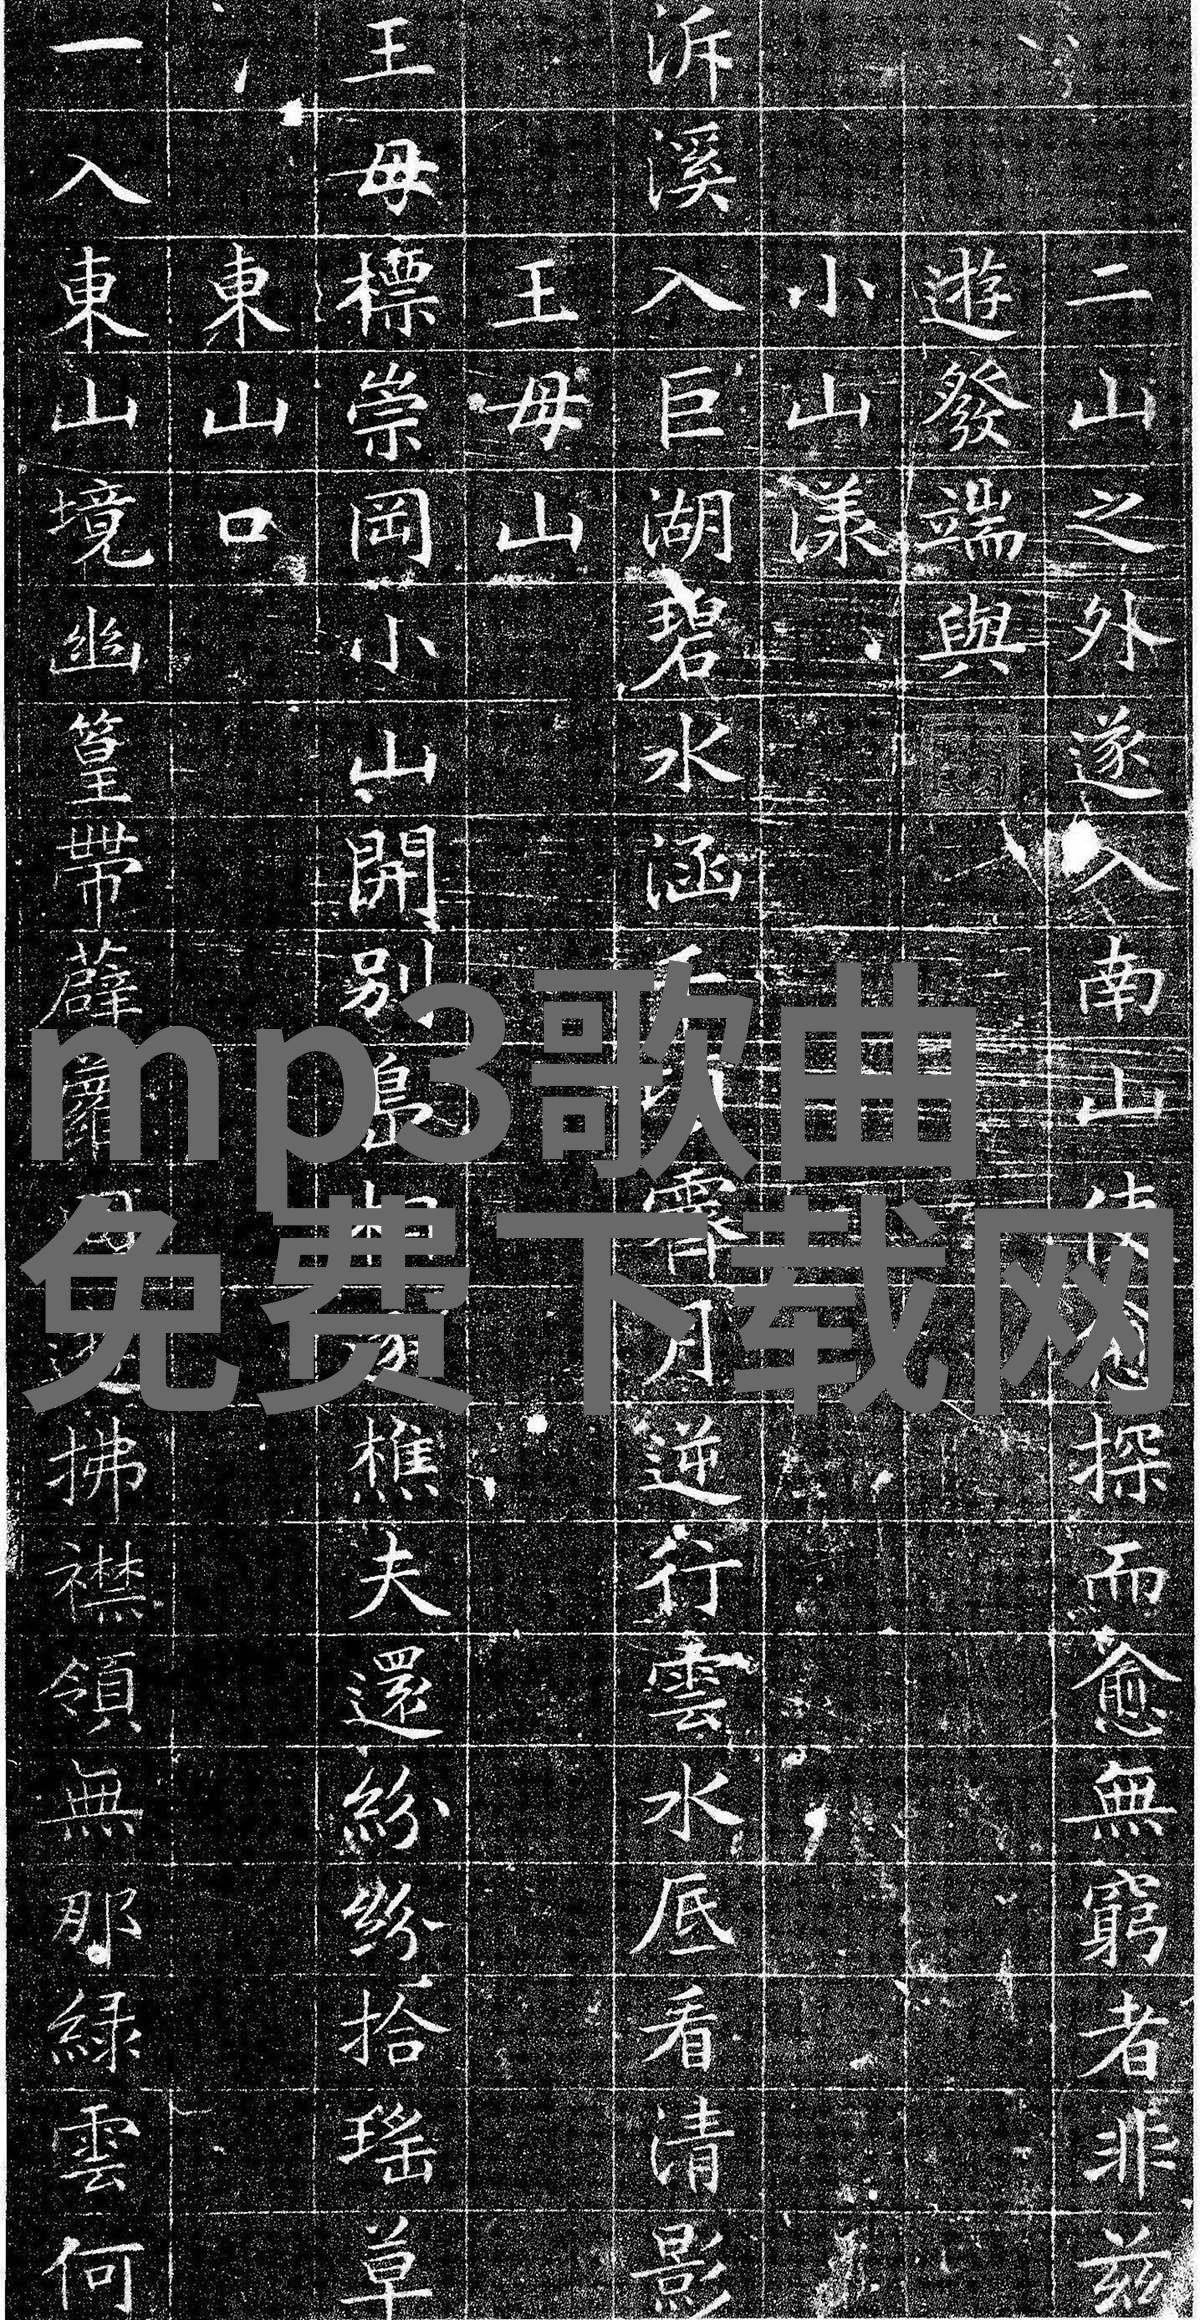 二山之外遂入南山探而愈無窮者非兹
遊發端與
小山漾
泝溪入巨湖碧水涵霽月逆行雲水底看清影
王母山
王母標崇岡小山開別島樵夫還紛紛拾瑤草
東山口
一入東山境幽篁帶薜蘿拂襟領無那綠雲何
mp3歌曲
免费下载网